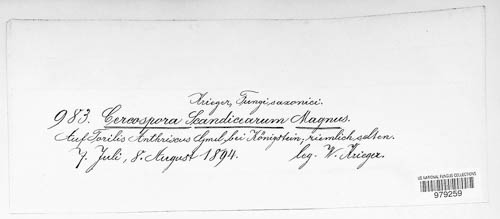 Krieger, Fungi saxonici.
983. Cercospora Scandicearum Magnus.
Auf Torilis Anthriscus Gmel., bei Königstein, ziemlich selten.
7. Juli, 8. August 1894. leg. W. Krieger.
US NATIONAL FUNGUS COLLECTIONS
979259